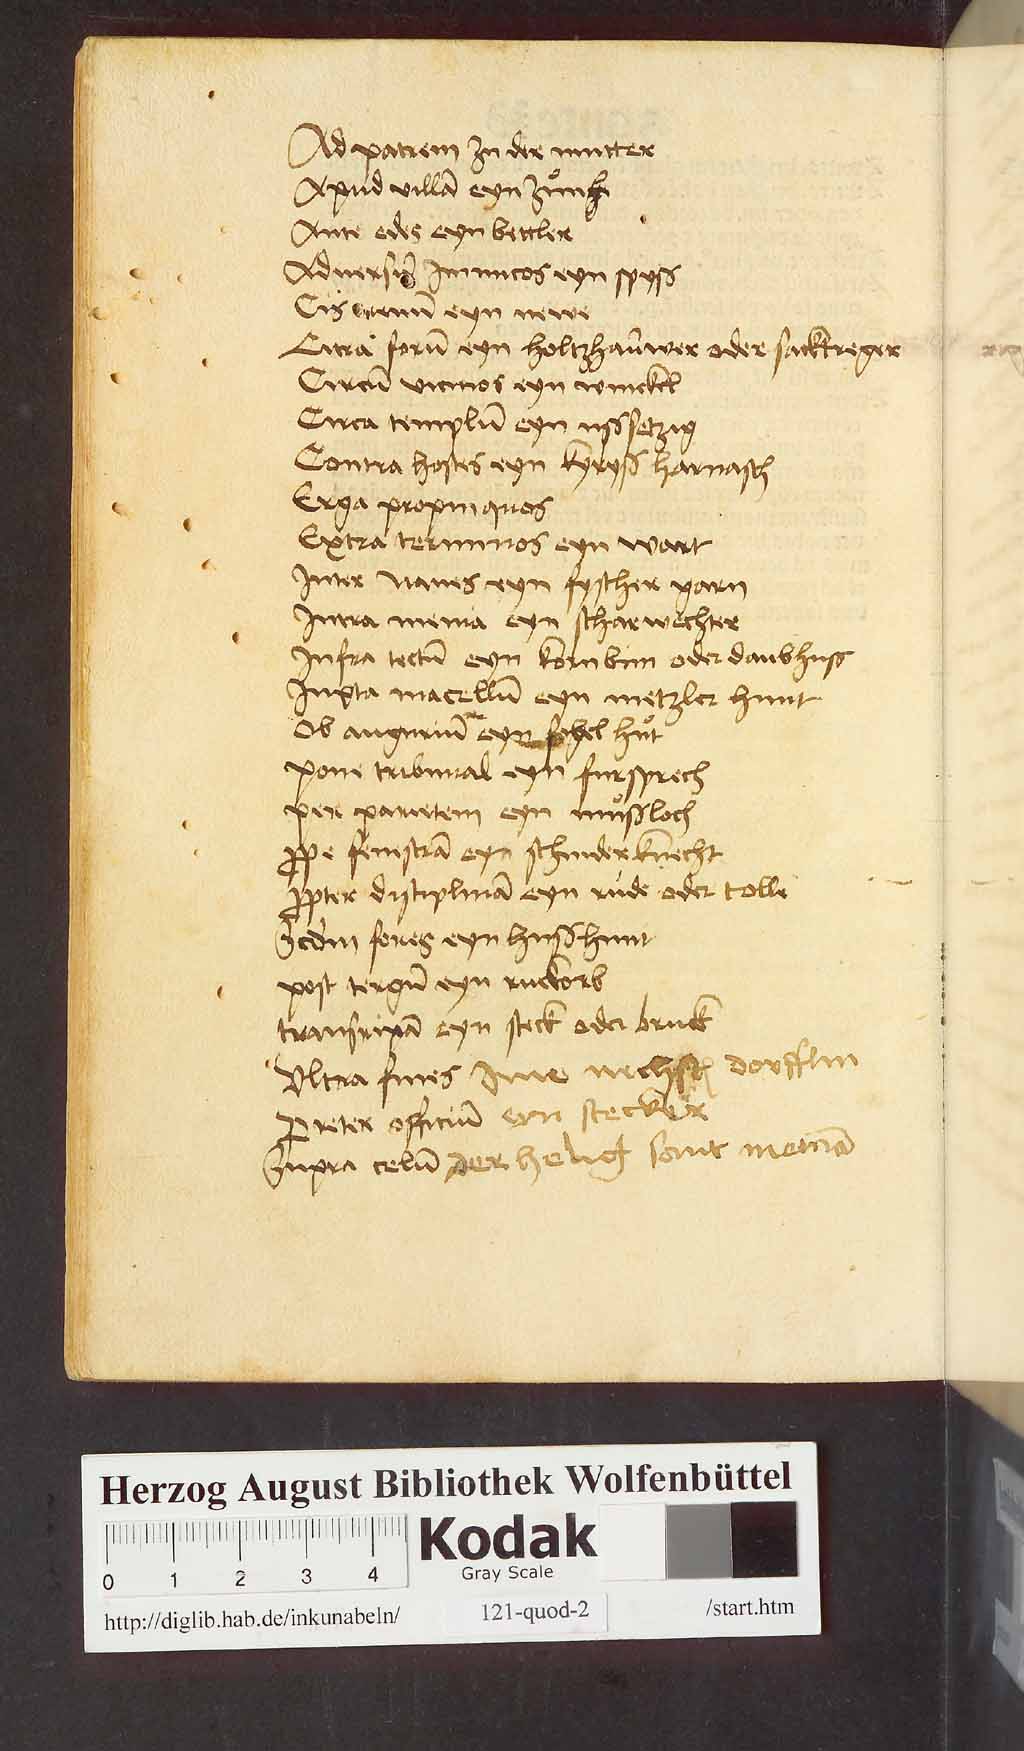 Ad patrem zu der mutter
Apud villā eyn zůnh
Ante edes eyn bettler
Adversus Inimicos eyn spyß
Cis renū eyn newe
Citra forū eyn holtzhauwer oder sacktreger
Circū vicinos eyn winckel
Circa templū eyn ussetzig
Contra hostes eyn kyryß harnasch
Erga propinquos
Extra terminos eyn wart
Inter naves eyn fyscher garn
Intra menia eyn scharwechter
Infra tectū eyn kornbün oder daubhuss
Iuxta macellū eyn metzler hunt
Ob auguriū eyn hůt
pone tribunal eyn fursprech
per parietem eyn mußloch
ppe fenestrā eyn schinderknecht
ppter disciplinā eyn rude oder tolle
Scdm fores eyn hußhunt
post tergū eyn ruckorb
trans ripā eyn steck oder bruck
Ultra fines Ime nechst dorfflin
Preter officiū eyn stecker
Supra celū der helig sant
Herzog August Bibliothek Wolfenbüttel
0 1 2 3 4
Kodak
Gray Scale
http://diglib.hab.de/inkunabeln/
121-quod-2
/start.htm